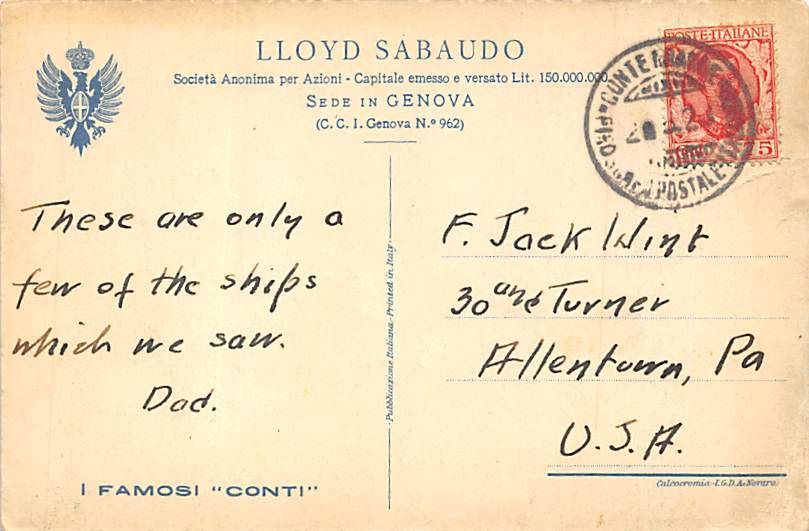 LLOYD SABAUDO
Società Anonima per Azioni - Capitale emesso e versato Lit. 150.000.000
SEDE IN GENOVA
(C. C. I. Genova N.º 962)
POSTE·ITALIANE
75
CONTE
POSTALE
These are only a
few of the ships
which we saw.
Dad.
I FAMOSI "CONTI"
Pubblicazione Italiana - Printed in Italy
F. Jack Wint
30 and Turner
Allentown, Pa
U.S.A.
Calcocromia - I.G.D.A. Novara